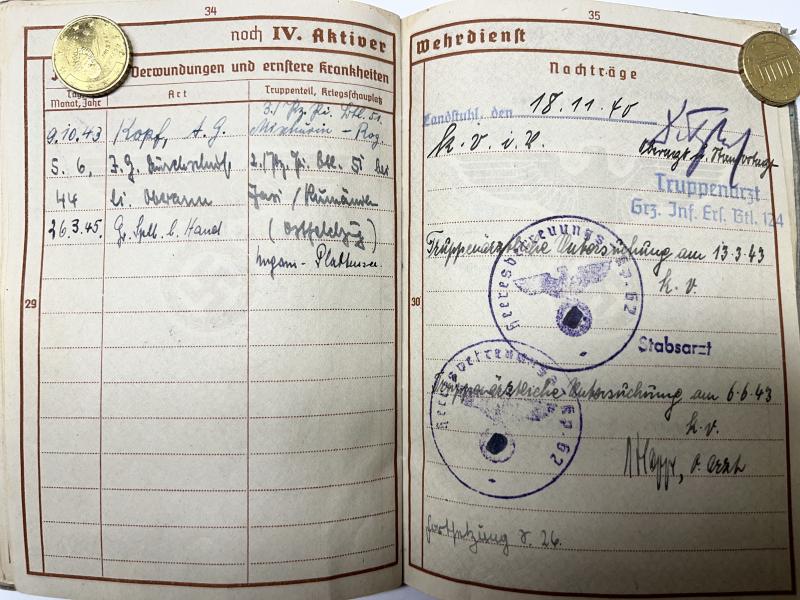 34
noch IV. Aktiver
Verwundungen und ernstere Krankheiten
Monat, Jahr
Art
Truppenteil, Kriegsschauplatz
3./Pz. Pi. Btl. 51
9.10.43 Kopf, A.G.
5. 6. I.G. Durchschuß 2./Pz. Pi. Btl. 51 bei
44 li. Oberarm Jasi / Rumänien
26.3.45. Gr. Splt. l. Hand (Ostfeldzug)
Ungarn - Plattensee
29
35
Wehrdienst
Nachträge
Landstuhl, den 18.11.40
k. v. i. V.
Oberarzt
Truppenarzt
Grz. Inf. Ers. Btl. 124
Truppenärztliche Untersuchung am 13.3.43
k. v.
30
Heeresbetreuungs
Stabsarzt
Heeresbetreuungs
Truppenärztliche Untersuchung am 6.6.43
k. v.
Fortsetzung S. 26.